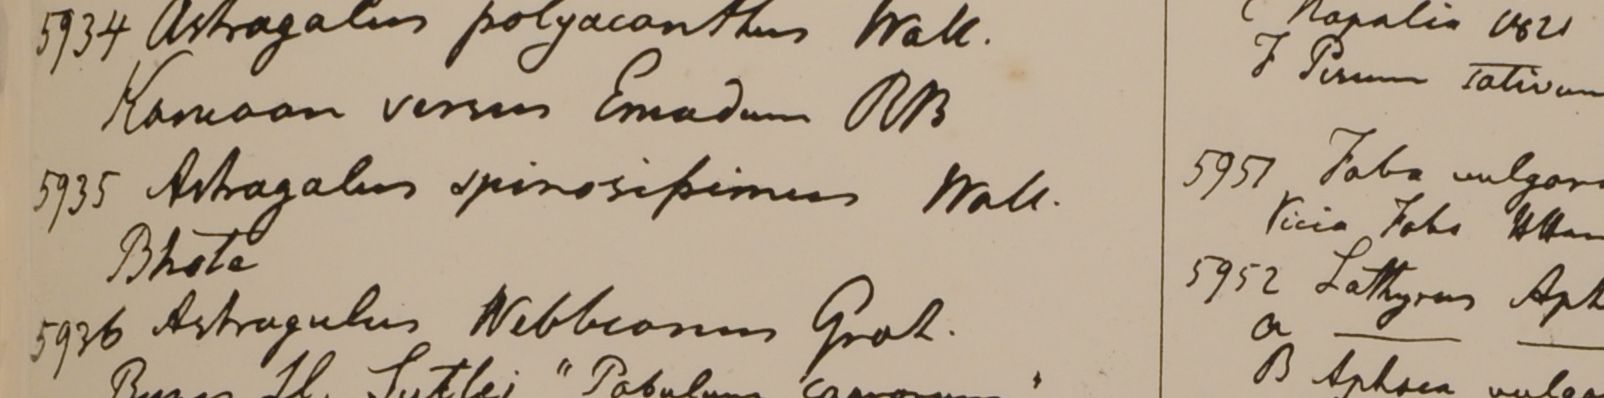 5934 Astragalus polyacanthus Wall.
Kamaon versus Emodum RB
5935 Astragalus spinosissimus Wall.
Bhote
5936 Astragulus Webbianus Grah.
"Pabulum
Napalia 1821
F Pisum sativum
5951 Faba vulgar
Vicia Faba
5952 Lathyrus Aph
a
B Aphaca vulga